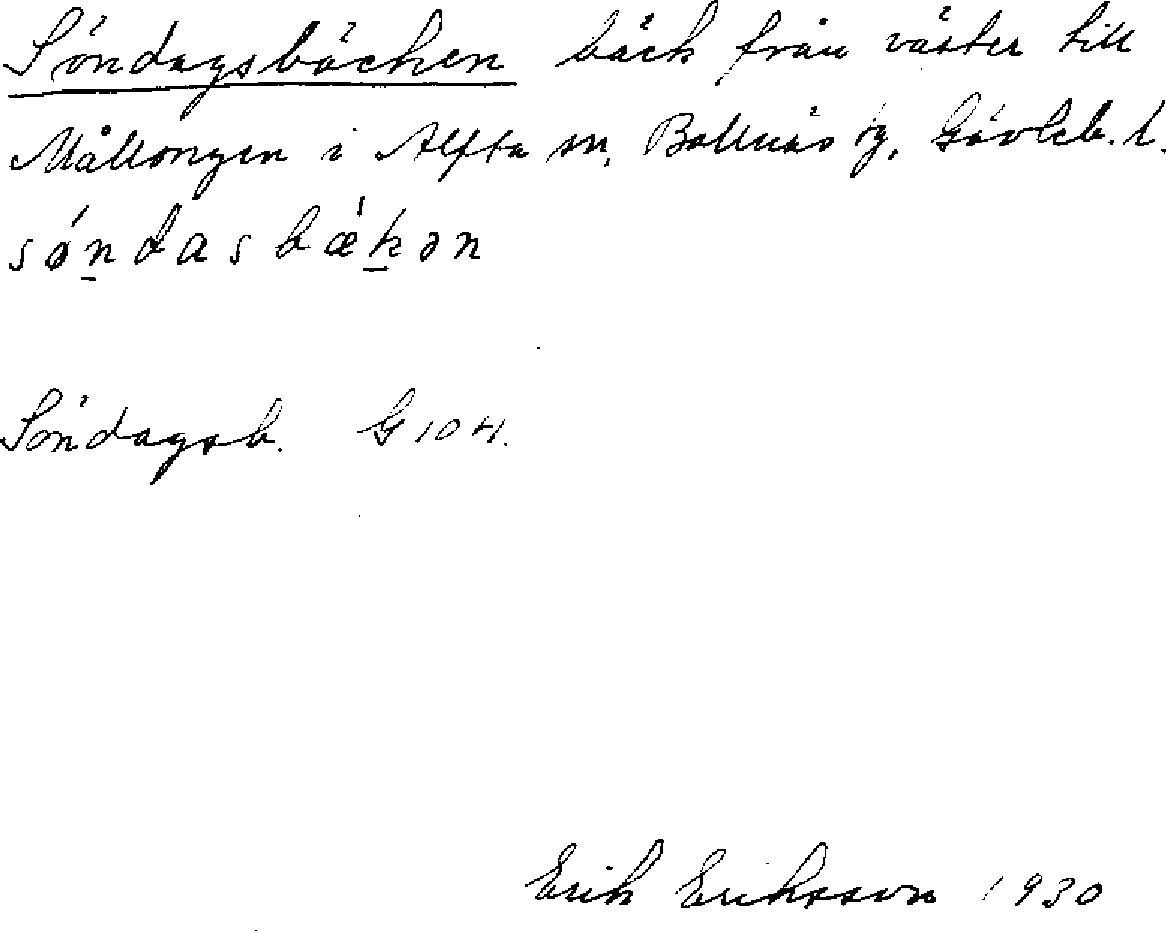 Söndagsbäcken bäck från väster till
Mållongen i Alfta sn, Bollnäs tg, Gävleb. l.
sǿn̠dasbǽk̠ən
Söndagsb. G 104.
Erik Eriksson 1930